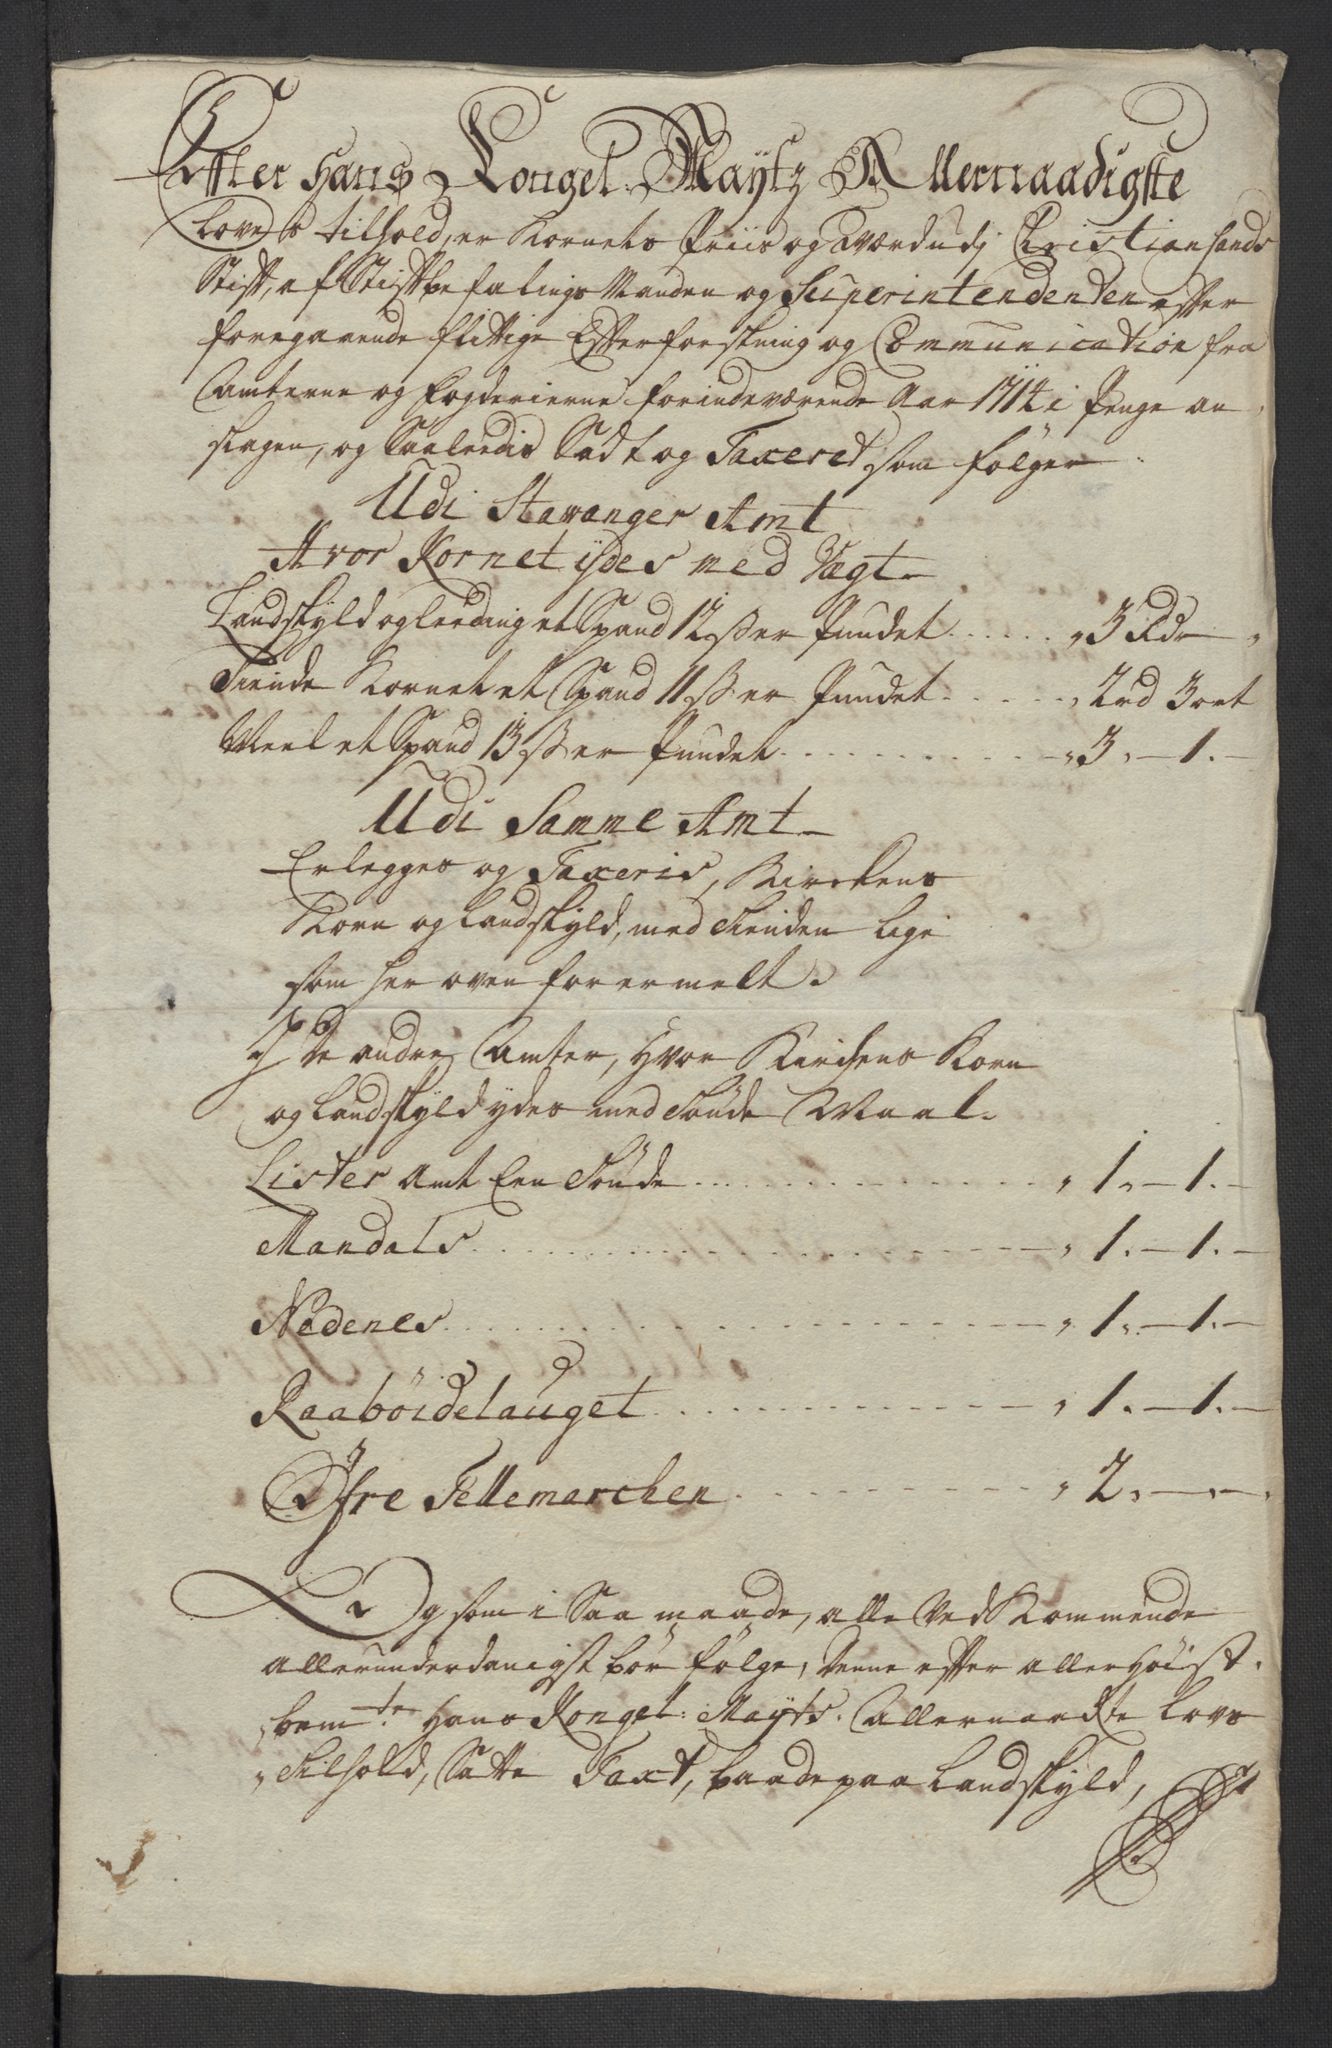 Effter Hans Kongel: Maÿtz Allernaadigste
Lovs tilhold, er Kornets Priis og Værd udj Christiansands
Stift, af Stiftbefalings Manden og Superintendenten efter
foregaaende flittige Efterforskning og Communication fra
Amterne og fogderierne for indeværende Aar 1714 i Penge an
slagen, og Saaledis Sadt og Taxered som følger
Udi Stavanger Amt
Hvor Kornet ÿdes med Vegt
Landskyld og leeding et Spand 12 ß er Pundet ...... 3 Rdr
Tiende Kornet et Spand 11 ß er Pundet ...... 2 rd 3 ort
Meel et Spand 13 ß er Pundet ...... 3 - 1 -
Udi Samme Amt
Erlegges og Taxeris, Kirckens
Korn og Landskyld, med Tienden lige
som her oven for er melt.
J de andre Amter, Hvor Kirckens Korn
og Landskyld ydes med Tönde Maal.
Lister Amt Een Tönde ...... 1 - 1 -
Mandals ...... 1 - 1 -
Nedenes ...... 1 - 1 -
Raaböidelauget ...... 1 - 1 -
Øfre Tellemarchen ...... 2 - -
Og som i Saa maade, alle Ved Kommende
allerunderdanigst bör fölge, denne efter aller Höist
bemte Hans Kongel: Maÿts. Allernaadste Lovs
Tilhold, Satte Taxt, baade paa Landskyld,